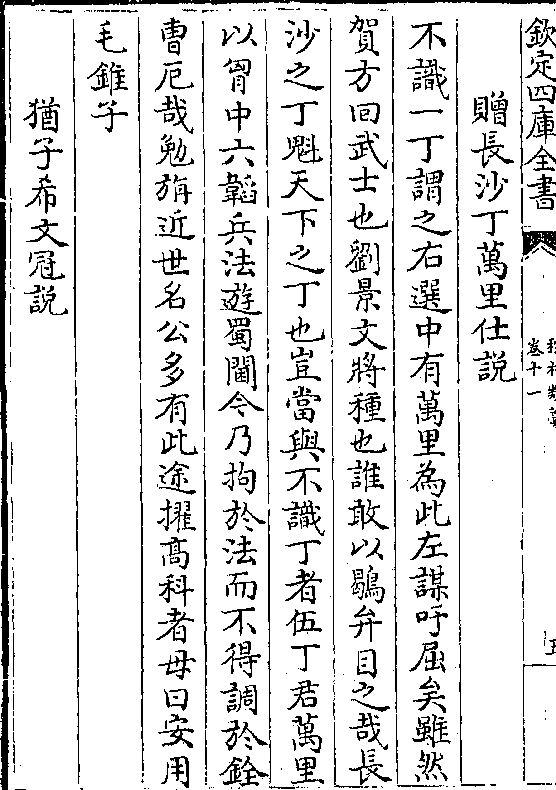 欽定四庫全書
卷十一
贈長沙丁萬里仕説
不識一丁謂之右選中有萬里為此左謀吁屈矣雖然
賀方回武士也劉景文將種也誰敢以鶡弁目之哉長
沙之丁魁天下之丁也豈當與不識丁者伍丁君萬里
以胷中六韜兵法遊蜀閫令乃拘於法而不得調於銓
曹厄哉勉旃近世名公多有此途擢髙科者毋曰安用
毛錐子
猶子希文冠説